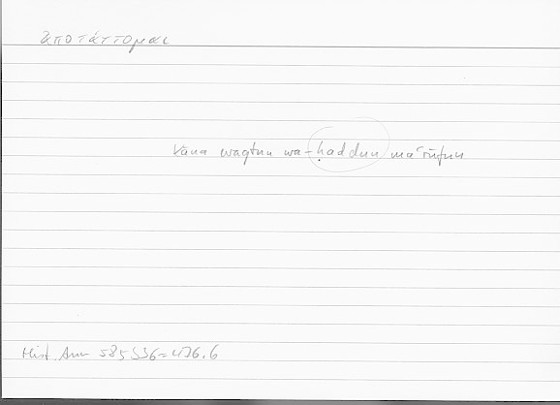 ἀποτάττομαι
kāna waqtun wa-ḥaddun maʿrūfun
Hist. An. 585 b36 = 436.6